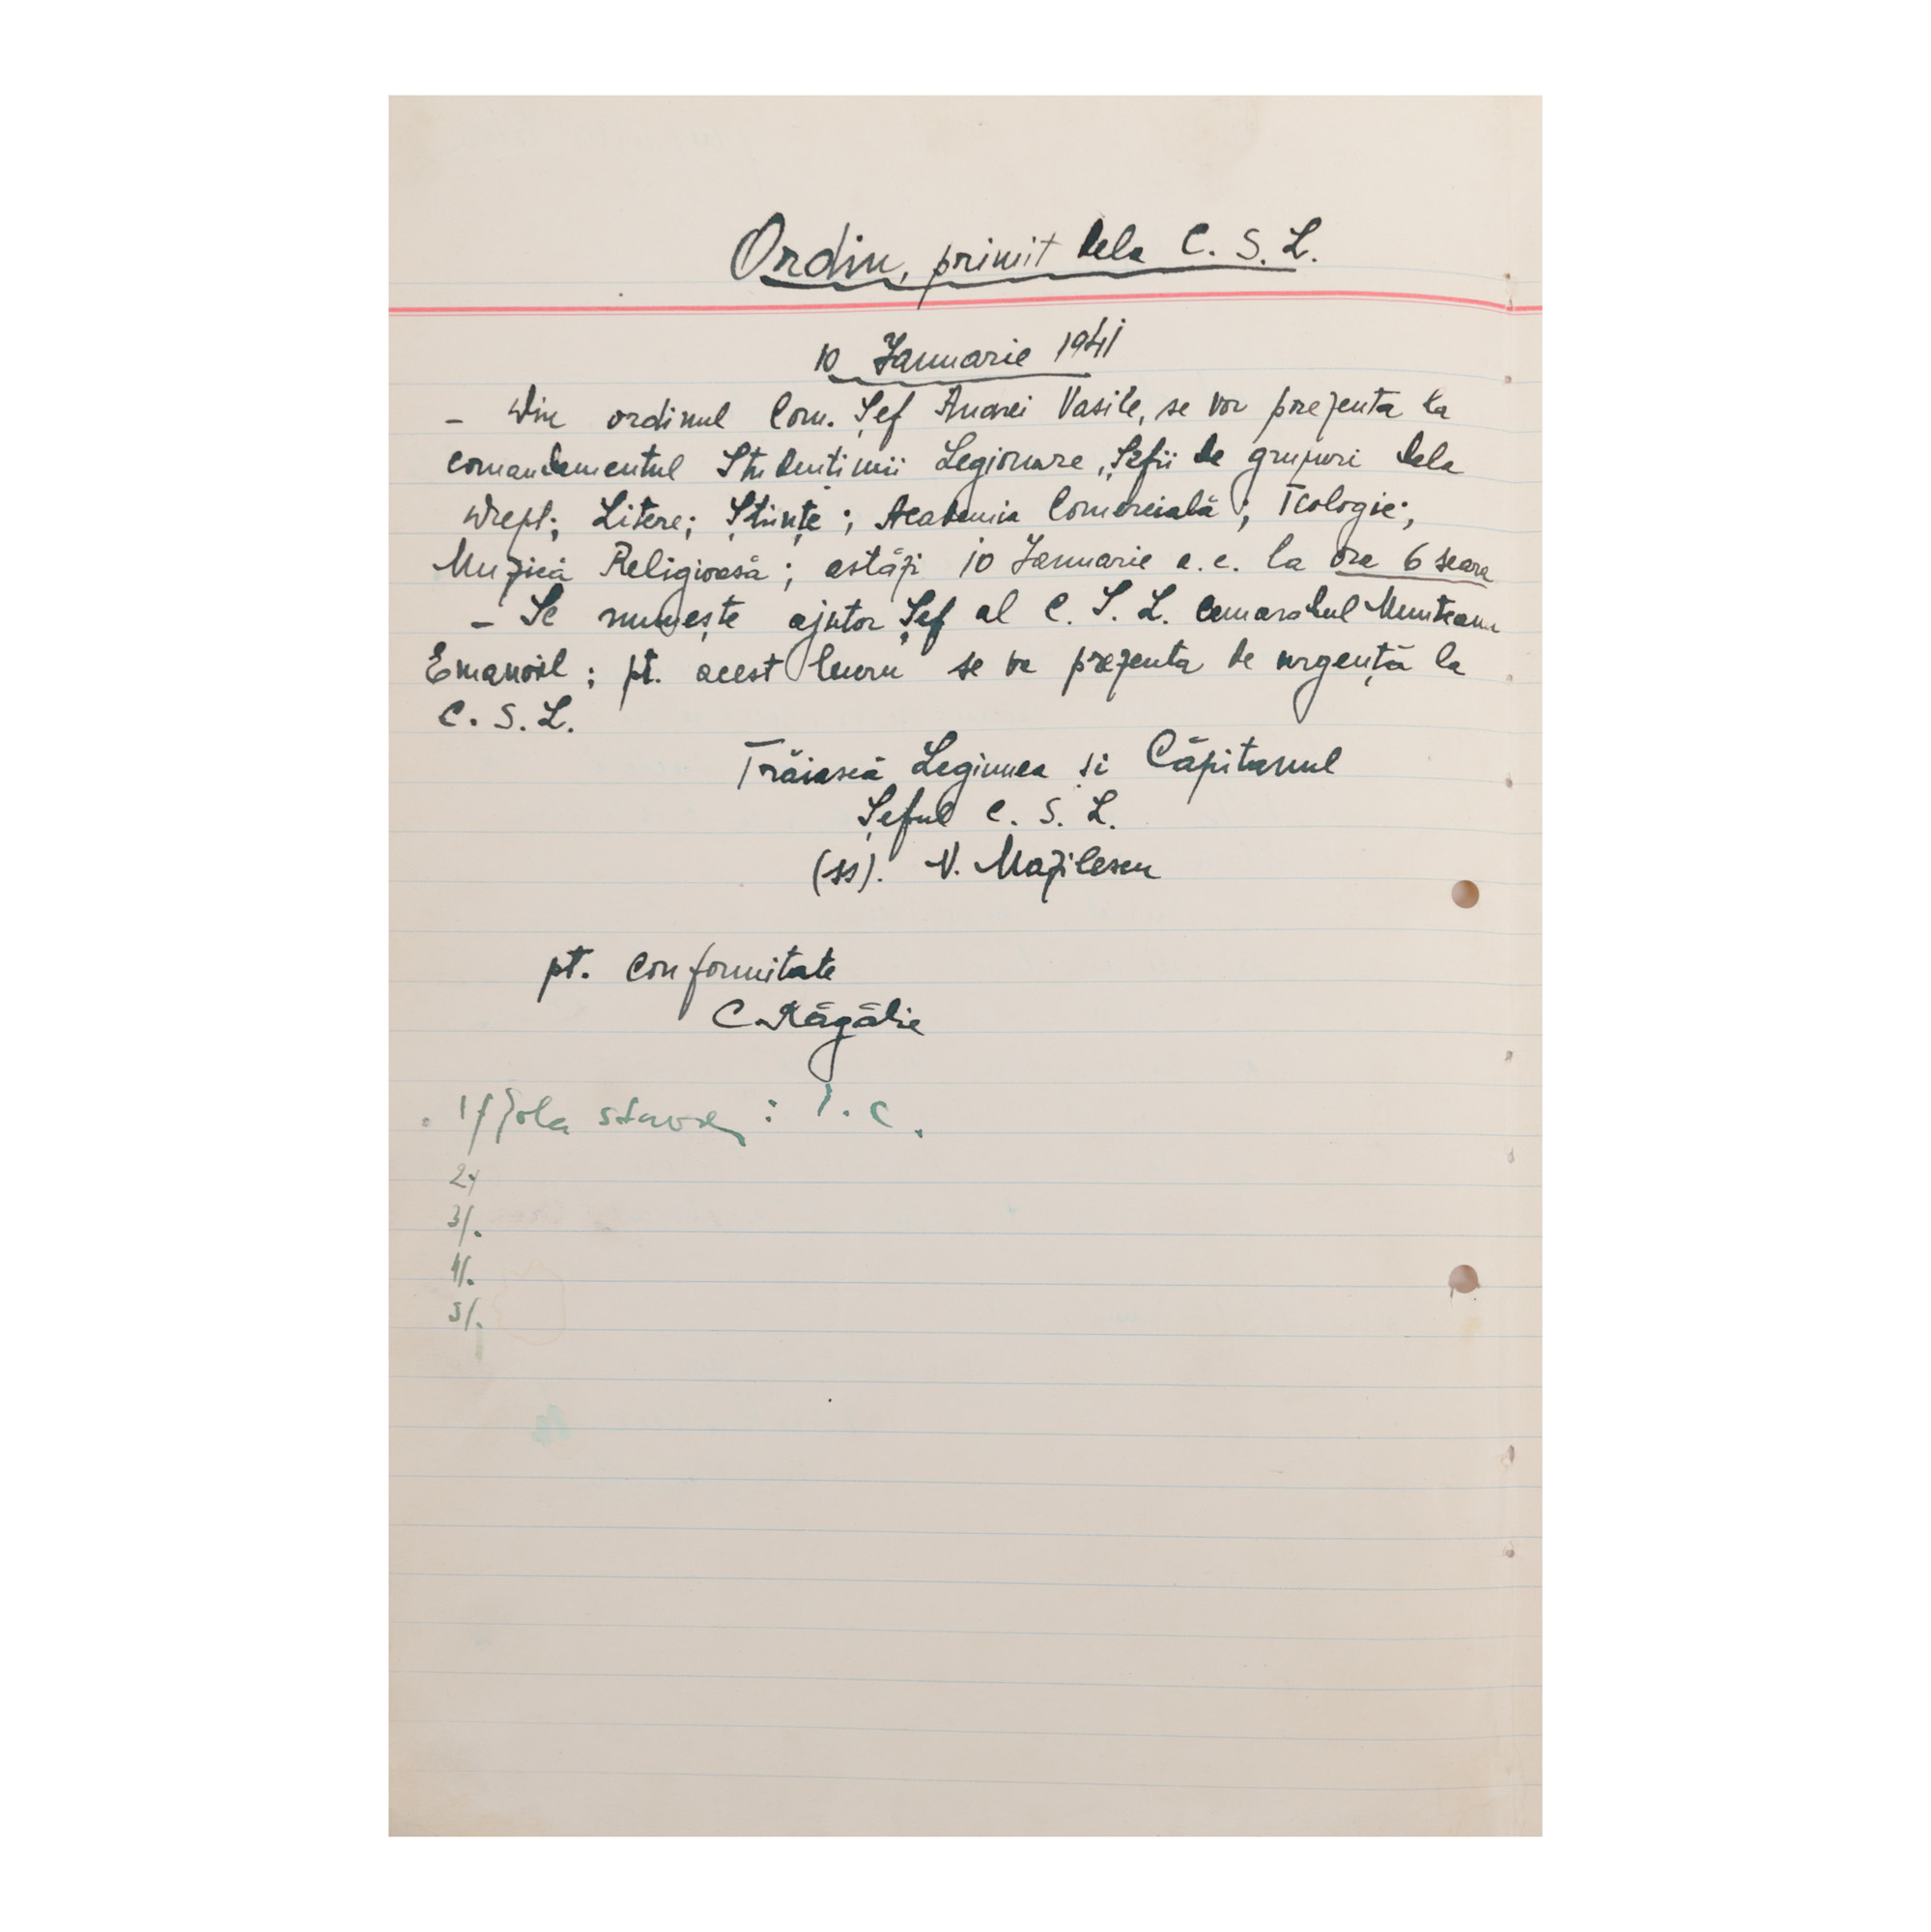 Ordin, primit dela C. S. L.
10 Ianuarie 1941
- Din ordinul Com. Șef Andrei Vasile, se vor prezenta la
comandamentul Studențimii Legionare, Șefii de grupuri dela
Drept; Litere; Științe; Academia Comercială; Teologie;
Muzică Religioasă; astăzi 10 Ianuarie a.c. la ora 6 seara
- Se numește ajutor Șef al C. S. L. camaradul Munteanu
Emanoil; pt. acest lucru se va prezenta de urgență la
C. S. L.
Trăiască Legiunea și Căpitanul
Șeful C. S. L.
(ss). V. Mazilescu
pt. conformitate
C. Răgălie
1/
2/
3/.
4/.
5/.